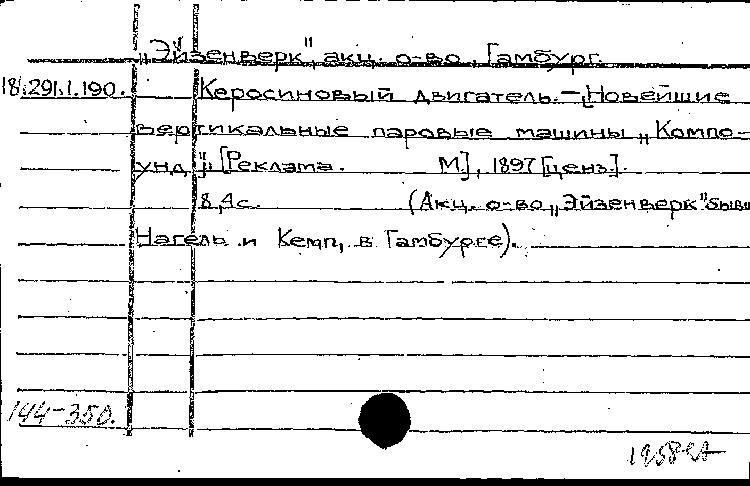 „Эйзенверк", акц. о-во, Гамбург.
18.291.1.190. Керосиновый двигатель. — „Новейшие
вертикальные паровые машины „Компо-
унд"„ [Реклама. М.], 1897 [ценз.].
8, 4с. (Акц. о-во „Эйзенверк" бывш
Нагель и Кемп, в Гамбурге).
144-350.